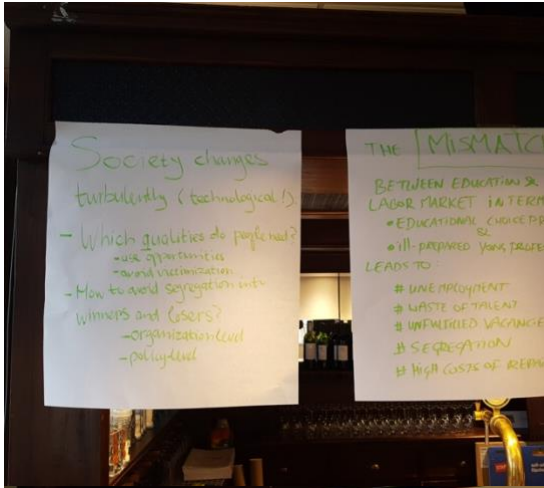 Society changes
turbulently (technological!)
- Which qualities do people need?
- use opportunities
- avoid victimization
- How to avoid segregation with
winners and losers?
- organization level
- policy level
THE MISMATCH
BETWEEN EDUCATION &
LABOR MARKET IN TERM
• EDUCATIONAL CHOICE
&
• ill-prepared yong profes
LEADS TO:
# UNEMPLOYMENT
# WASTE OF TALENT
# UNFULFILLED VACANCE
# SEGREGATION
# HIGH COSTS OF